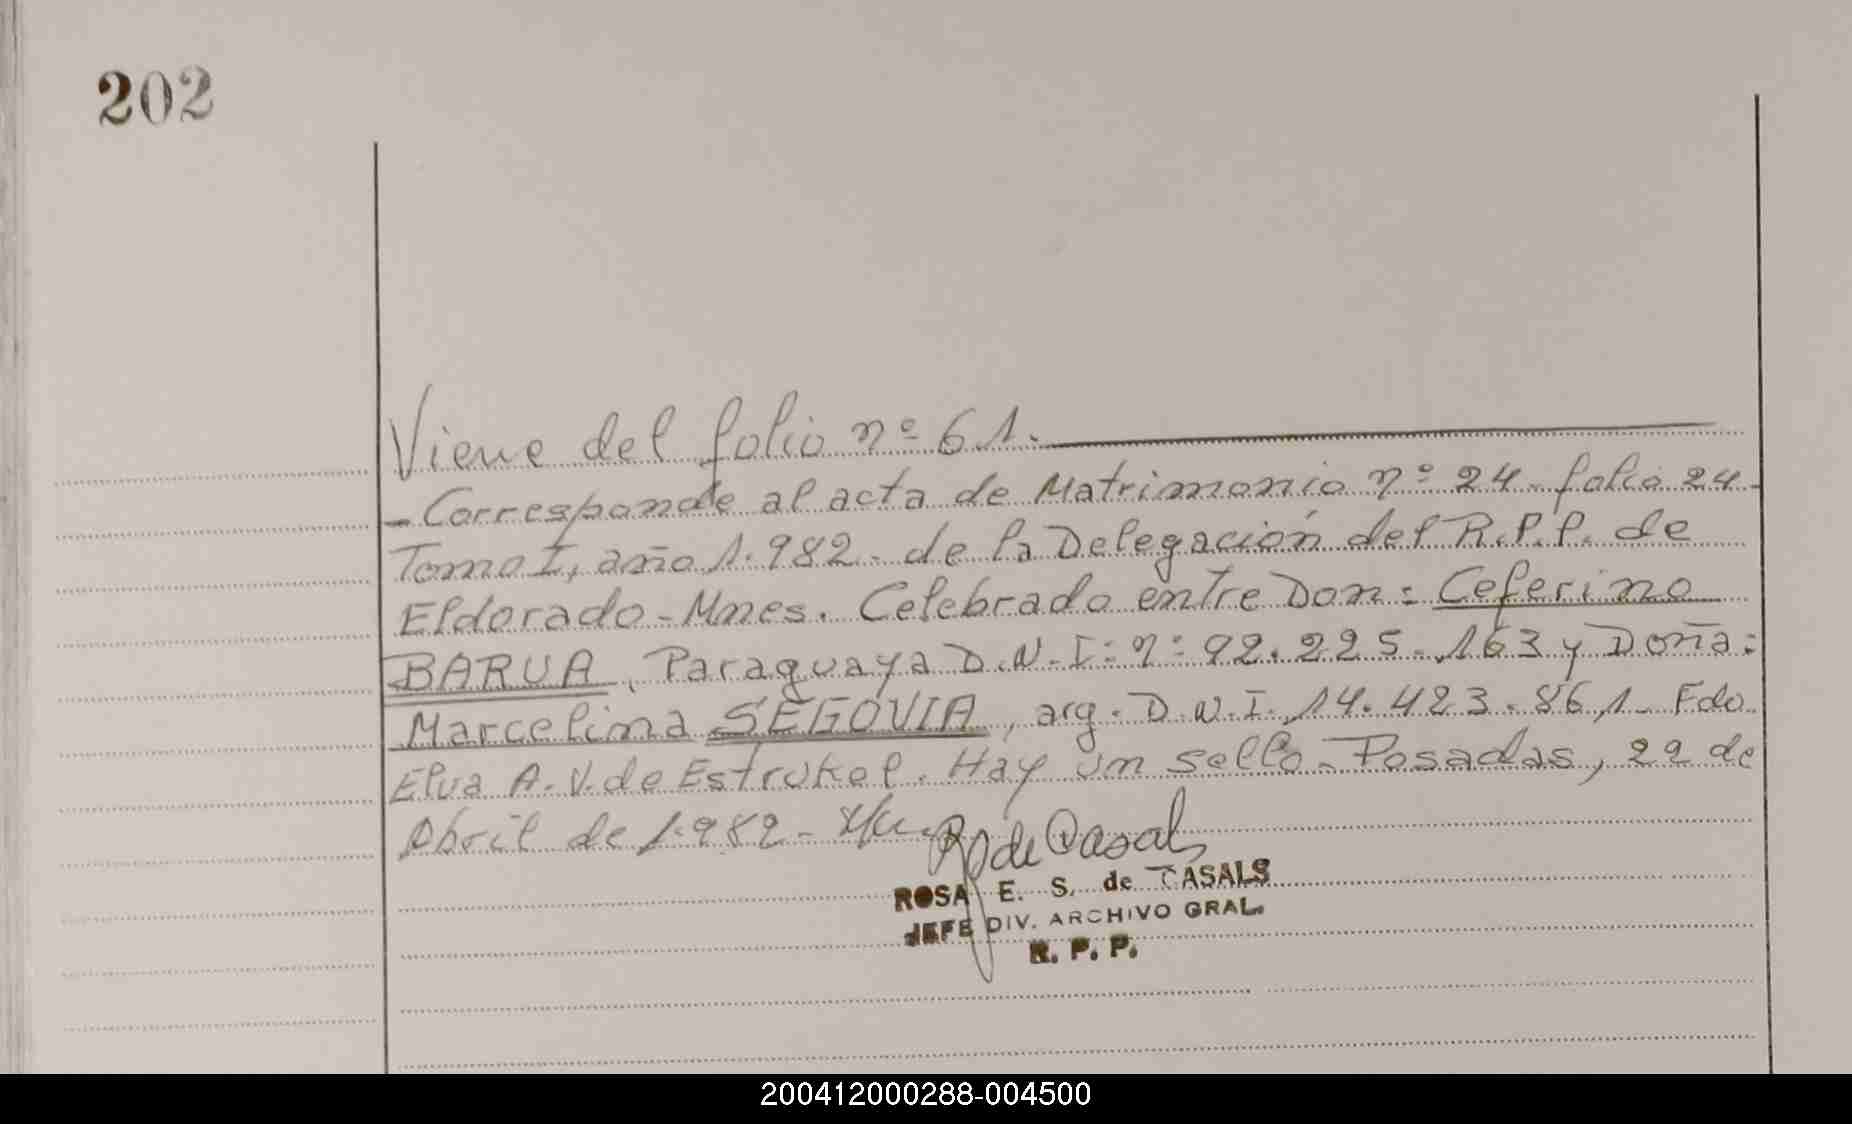 202
Viene del folio nº 61.
- Corresponde al acta de Matrimonio nº 24 - folio 24 -
Tomo I, año 1.982 - de la Delegación del R.P.P. de
Eldorado - Mnes. Celebrado entre Don: Ceferino
BARUA, Paraguaya D.N.I: nº 92.225.163 y Doña:
Marcelina SEGOVIA, arg. D.N.I. 14.423.861 - Fdo
Elva A. V. de Estrukel. Hay un sello - Posadas, 22 de
Abril de 1.982 -
R de Casals
ROSA E. S. de CASALS
JEFE DIV. ARCHIVO GRAL.
R. P. P.
200412000288-004500